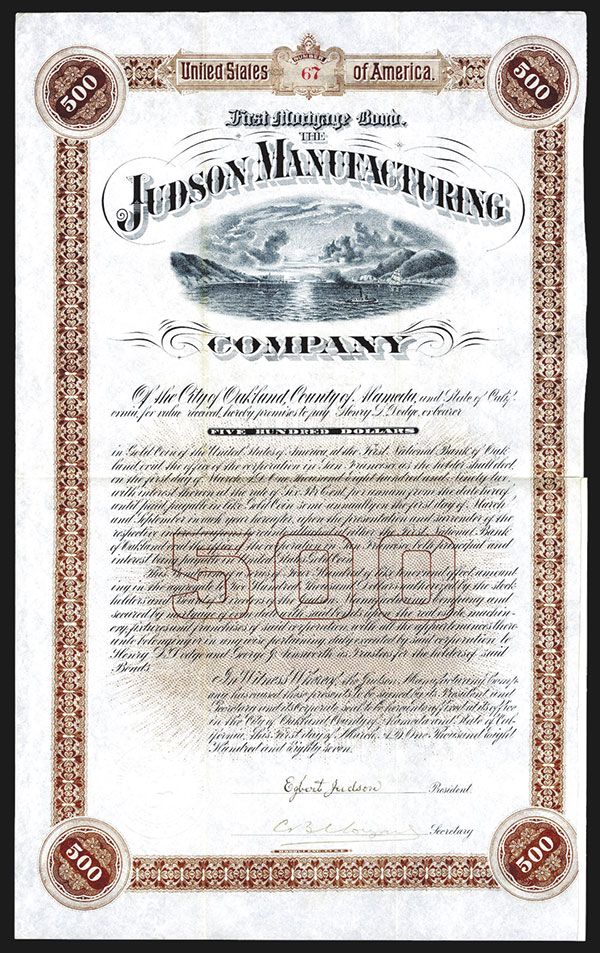 500
NUMBER
United States 67 of America.
500
First Mortgage Bond.
THE
JUDSON MANUFACTURING
COMPANY
Of the City of Oakland, County of Alameda, and State of Calif-
ornia, for value received, hereby promises to pay Henry L. Dodge, or bearer
FIVE HUNDRED DOLLARS
in Gold Coin of the United States of America, at the First National Bank of Oak
land, or at the office of the corporation in San Francisco as the holder shall elect
on the first day of March A.D. One thousand eight hundred and Ninety
with interest thereon at the rate of Six Per Cent. per annum from the date hereof,
until paid, payable in like Gold Coin semi-annually on the first day of March
and September in each year hereafter, upon the presentation and surrender of the
respective National Bank
of Oakland in San Francisco, both principal and
interest being payable in United States Gold Coin.
This Bond is one of a series of Four Hundred of like tenor and effect amount
ing in the aggregate to Hundred Thousand Dollars by the stock
holders and
secured by mortgage real estate, machin-
ery, fixtures and franchises of said corporation, with all the appurtenances there
unto belonging or in any wise pertaining, duly executed by said corporation, to
Henry L. Dodge and George J. Ainsworth as Trustees for the holders of said
Bonds.
In Witness Whereof, the Judson Manufacturing Comp
any has caused these presents to be signed by its President and
Secretary and its Corporate seal to be hereunto affixed at its office
in the City of Oakland, County of Alameda and State of Cal-
ifornia, this First day of March, A.D. One Thousand Eight
Hundred and Eighty seven.
500
Egbert Judson President.
Secretary
500
500